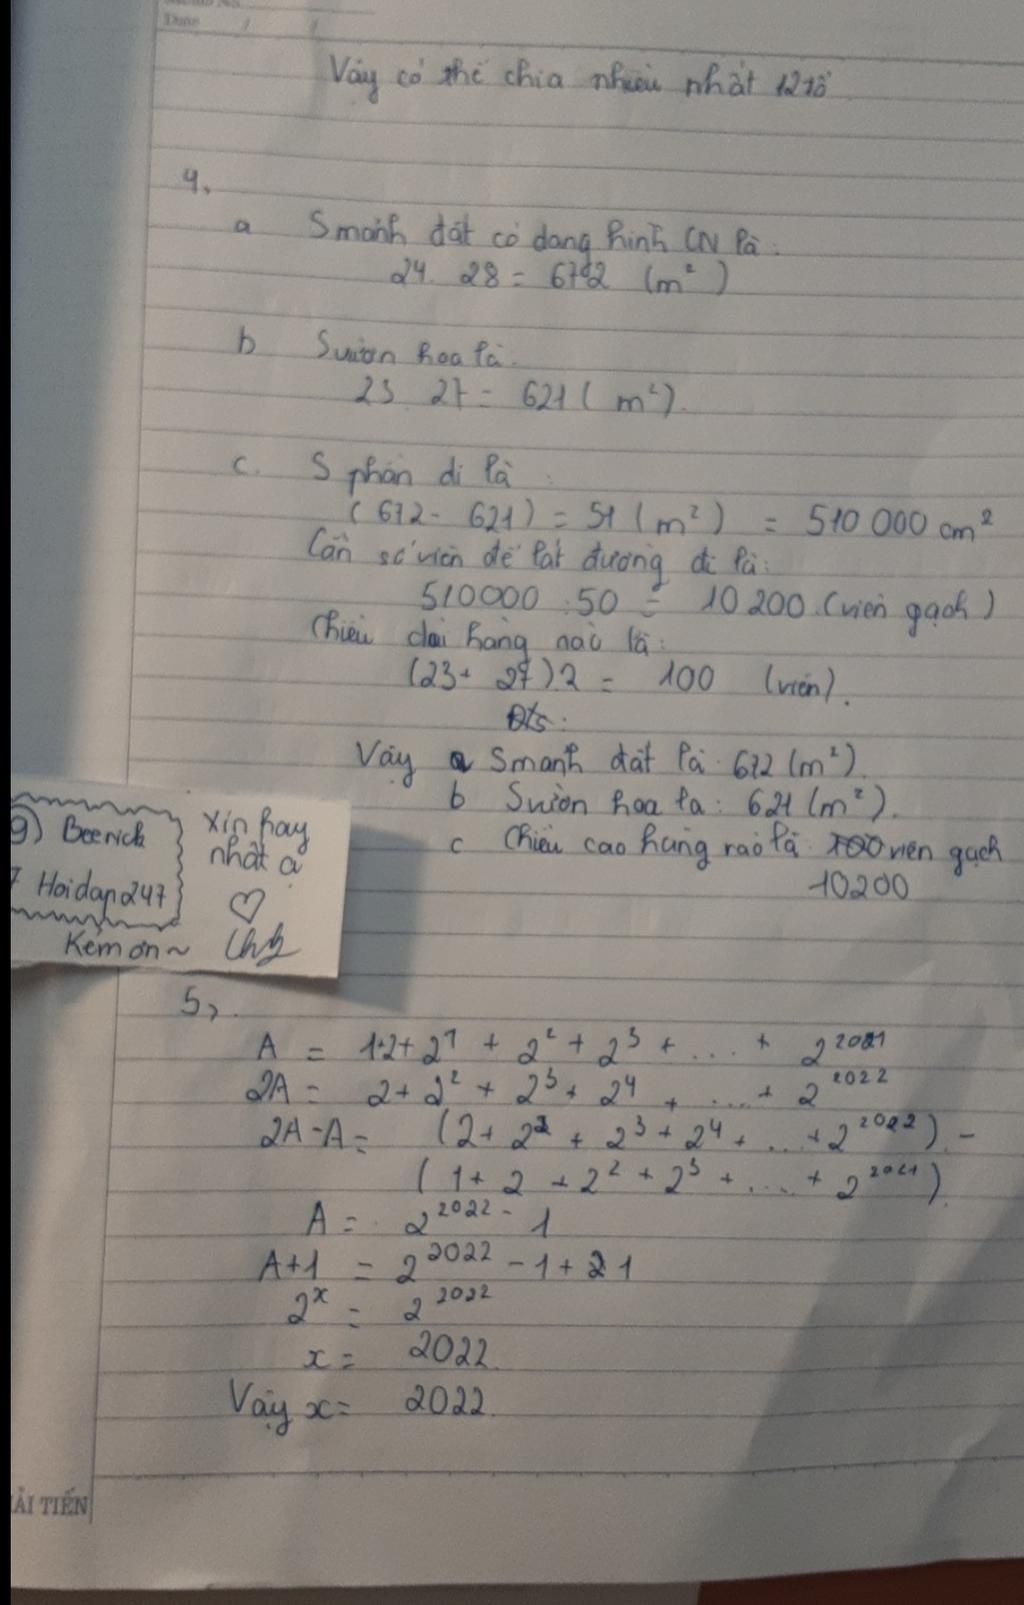 Date / /
Vậy có thể chia nhiều nhất 12 tổ
4,
a S mảnh đất có dạng hình CN là:
24. 28 = 672 (m²)
b S vườn hoa là.
23 27 = 621 (m²).
c. S phần đi là :
(672 - 621) = 51 (m²) = 510 000 cm²
Cần số viên để lát đường đi là:
510000 : 50 = 10 200. (viên gạch)
Chiều dài hàng rào là:
(23+ 27).2 = 100 (viên).
Đ/s:
Vậy a S mảnh đất là: 672 (m²).
b S vườn hoa là: 621 (m²).
c Chiều cao hàng rào là 100 viên gạch
10200
9) Beerich
7 Hoidap247
Xin hay
nhất ạ
♡
Kém ơn~
5,.
A = 1+2+ 2¹ + 2² + 2³ + ... + 2²⁰²¹
2A = 2+ 2² + 2³ + 2⁴ + ....+ 2²⁰²²
2A-A= (2+ 2² + 2³ + 2⁴ + ... +2²⁰²²) -
(1+ 2 + 2² + 2³ + ... + 2²⁰²¹).
A = 2²⁰²² - 1
A+1 = 2²⁰²² - 1 + 1
2ˣ = 2²⁰²²
x = 2022.
Vậy x = 2022.
ẢI TIẾN